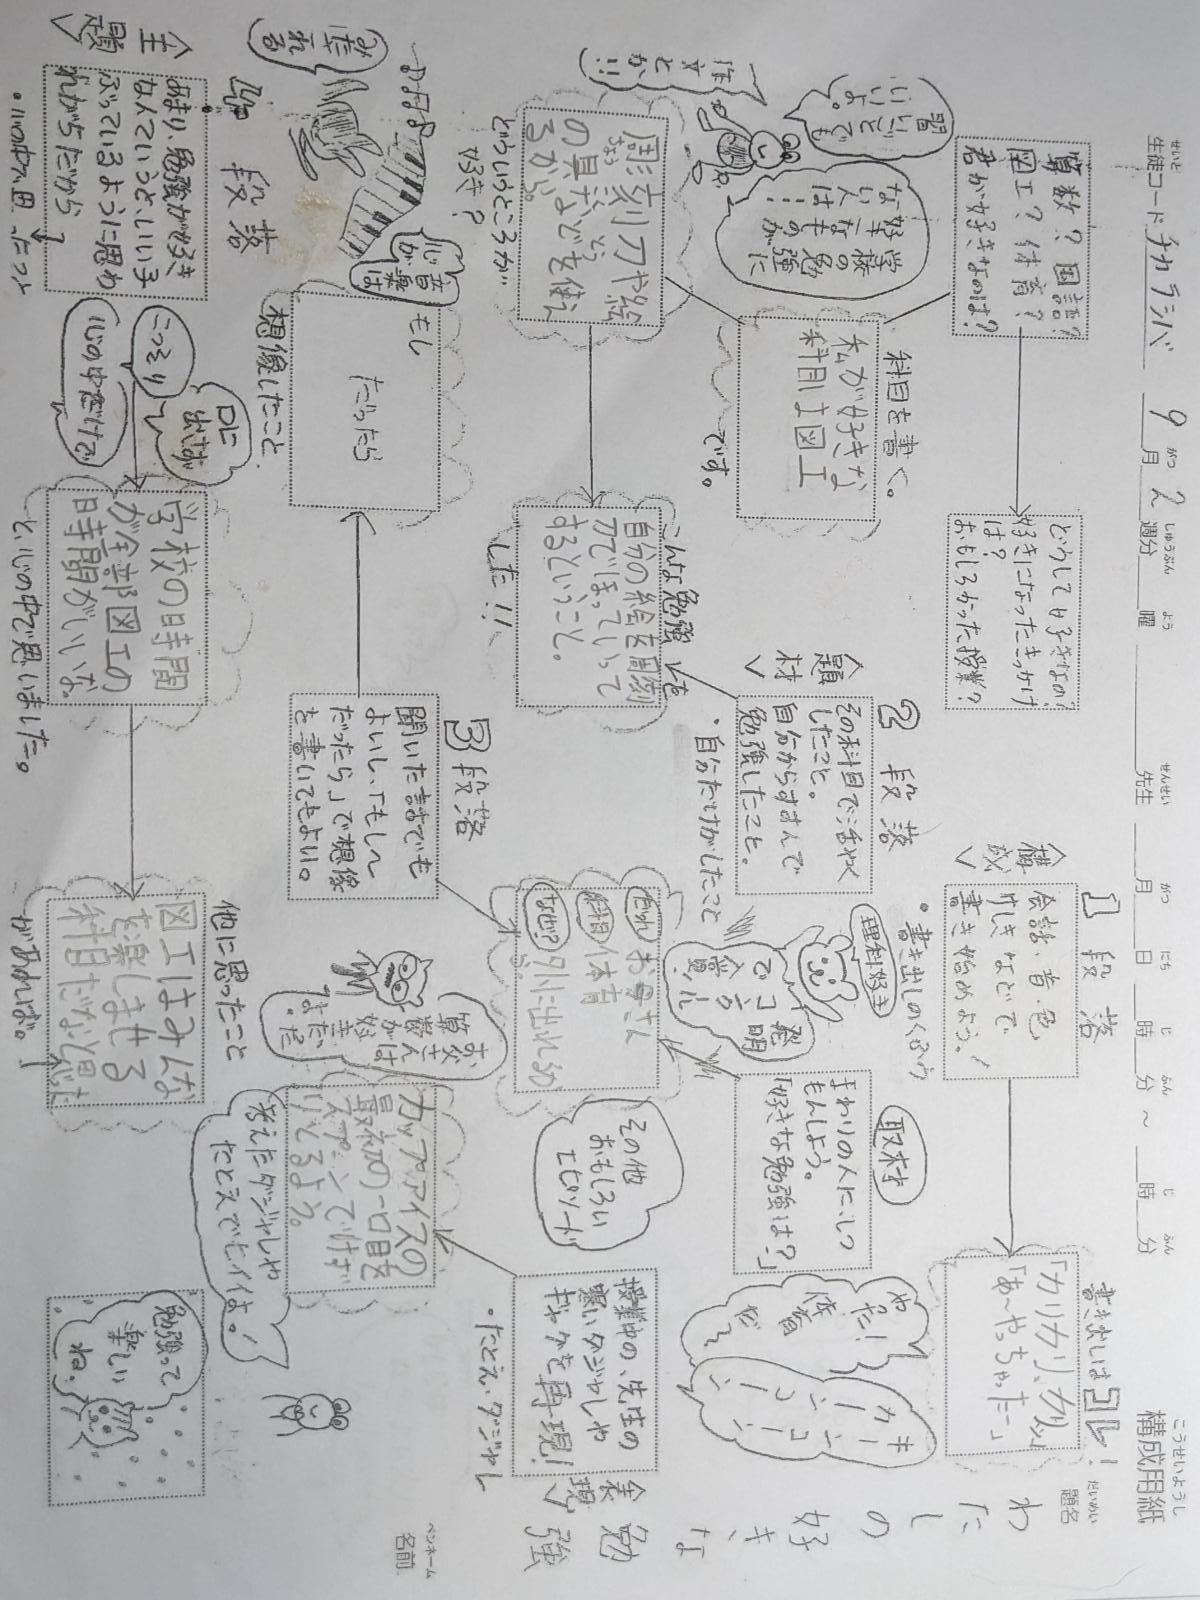 構成用紙
こうせいようし
生徒コード チカラシバ 9月2週分 曜 先生 月 日 時 分 ~ 時 分
せいと がつ しゅうぶん よう せんせい がつ にち じ ふん じ ふん
題名
だいめい
わたしの好きな勉強
ペンネーム
名前
書き出しはコレ!
「カリカリ、カリッ」
「あ〜やっちゃったー」
1段落
<構成>
会話・音・色
けしきなどで
書き始めよう!
・書き出しのくふう
どうして好きなの?
好きになったきっかけ
は?
おもしろかった授業?
算数?国語?
図工?体育?
君が好きなのは?
キーンコーン
カーンコーン
やった!
体育
だ〜
取材
まわりの人にしつ
もんしよう。
「好きな勉強は?」
理科好き
発明
コンクール
で入賞!
2段落
<題材>
その科目で活やく
したこと。
自分からすすんで
勉強したこと。
・自分だけがしたこと
科目を書く。
私が好きな
科目は図工
です。
学校の勉強に
好きなものが
ない人は…
習いごとでも
いいよ。
作文とか!!
<表現>
授業中の、先生の
寒いダジャレや
ギャグを再現!
・たとえ・ダジャレ
その他
おもしろい
エピソード
だれ お母さん
科目 体育
なぜ? 外に出れるから
こんな勉強を
自分の絵を周刻
刀でほっていって
するということ。
した!!
周刻刀や絵
の具などを使え
るから。
どういうところが
好き?
カップアイスの
最初の一口目を
スプーンでけず
りとるよう。
考えたダジャレや
たとえでもイイよ。!
お父さんは
算数が好き
だったなあ
3段落
聞いた話でも
よいし、「もし〜
だったら」で想像
を書いてもよい。
もし
だったら
想像したこと
音楽は
心が
みだれる
4段落
<主題>
あまり、勉強が好き
なんていうと、いい子
ぶっているように思わ
れがちだから
・心の中で思ったこと
口に
出さず
こっそり
心の中だけで
学校の時間
が全部図工の
時間がいいな。
と、心の中で思いました。
他に思ったこと
図工はみんな
を楽しませる
科目だなと思った
があれば。
勉強って
楽しい
ね。